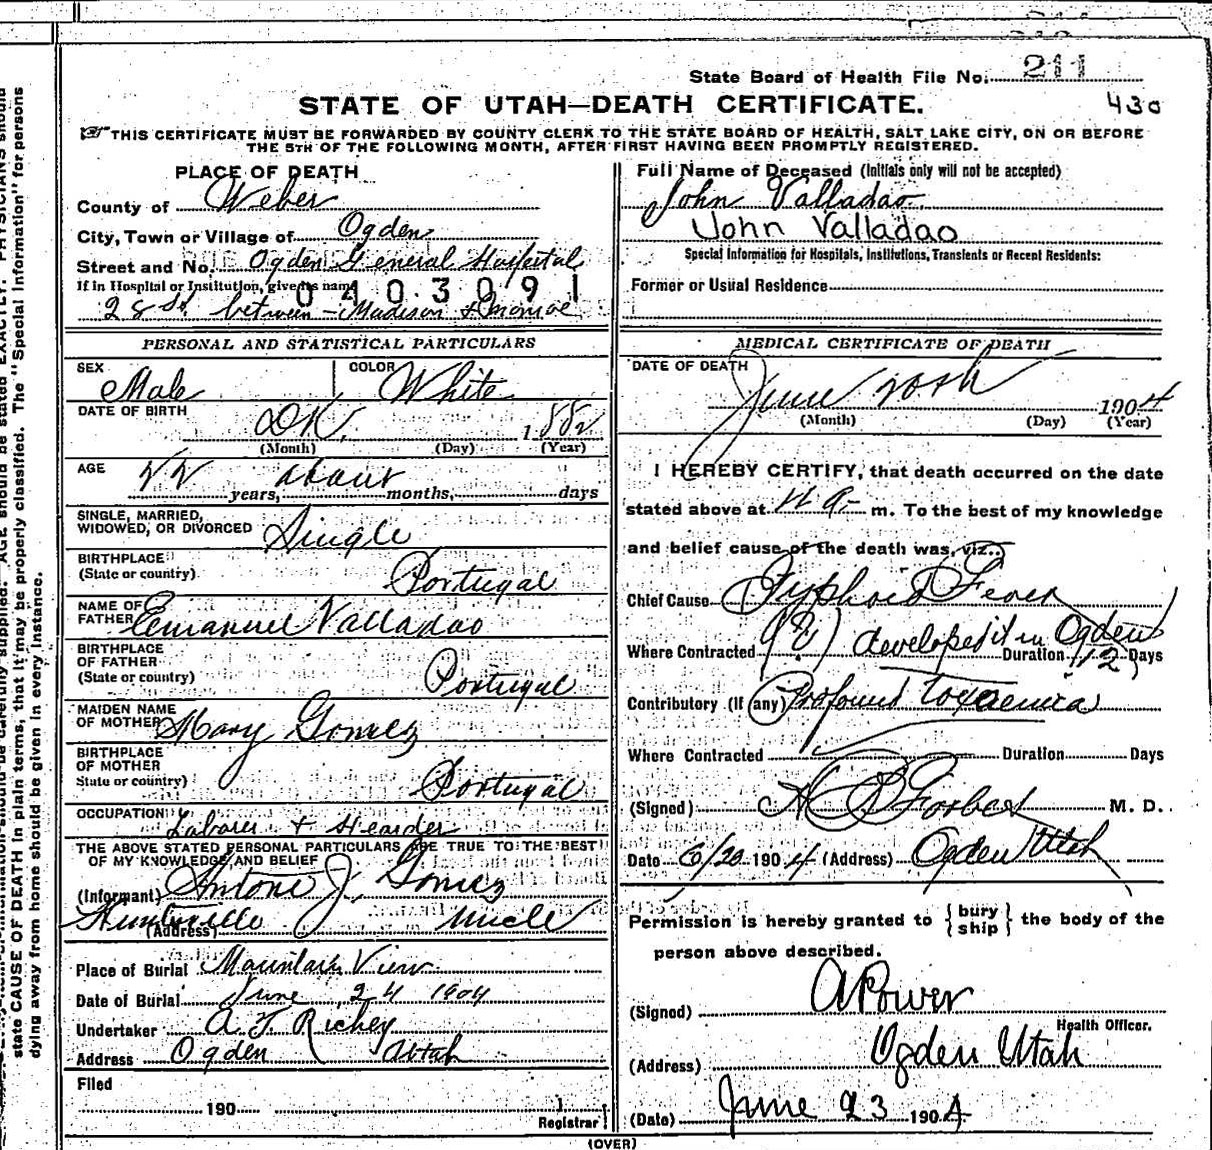 state CAUSE OF DEATH in plain terms, that it may be properly classified. The "Special Information" for persons
dying away from home should be given in every instance.
State Board of Health File No. 211
STATE OF UTAH—DEATH CERTIFICATE.
430
THIS CERTIFICATE MUST BE FORWARDED BY COUNTY CLERK TO THE STATE BOARD OF HEALTH, SALT LAKE CITY, ON OR BEFORE
THE 5TH OF THE FOLLOWING MONTH, AFTER FIRST HAVING BEEN PROMPTLY REGISTERED.
PLACE OF DEATH
County of Weber
City, Town or Village of Ogden
Street and No. Ogden General Hospital
If in Hospital or Institution, give its name
0403091
28 St. between Madison & Monroe
Full Name of Deceased (Initials only will not be accepted)
John Valladao
John Valladao
Special Information for Hospitals, Institutions, Transients or Recent Residents:
Former or Usual Residence
PERSONAL AND STATISTICAL PARTICULARS
SEX Male COLOR White
DATE OF BIRTH DK. 1882
(Month) (Day) (Year)
AGE 22 about
years, months, days
SINGLE, MARRIED,
WIDOWED, OR DIVORCED Single
BIRTHPLACE
(State or country) Portugal
NAME OF
FATHER Emanuel Valladao
BIRTHPLACE
OF FATHER
(State or country) Portugal
MAIDEN NAME
OF MOTHER Mary Gomez
BIRTHPLACE
OF MOTHER
State or country) Portugal
OCCUPATION Laborer + Hearder
THE ABOVE STATED PERSONAL PARTICULARS ARE TRUE TO THE BEST
OF MY KNOWLEDGE AND BELIEF
(Informant) Antone J. Gomez
Huntsville Uncle
(Address)
Place of Burial Mountain View
Date of Burial June 24 1904
Undertaker A. J. Richey
Address Ogden Utah
Filed
190
Registrar
MEDICAL CERTIFICATE OF DEATH
DATE OF DEATH
June 20th 1904
(Month) (Day) (Year)
I HEREBY CERTIFY, that death occurred on the date
stated above at 11 a. m. To the best of my knowledge
and belief cause of the death was, viz.:
Chief Cause Typhoid Fever
Where Contracted (?) developed it in Ogden Duration 12 Days
Contributory (If any) Profound toxaemia
Where Contracted Duration Days
(Signed) Forbes M. D.
Date 6/20 1904 (Address) Ogden Utah
Permission is hereby granted to { bury ship } the body of the
person above described.
(Signed) A Power
Health Officer.
(Address) Ogden Utah
(Date) June 23 1904
(OVER)